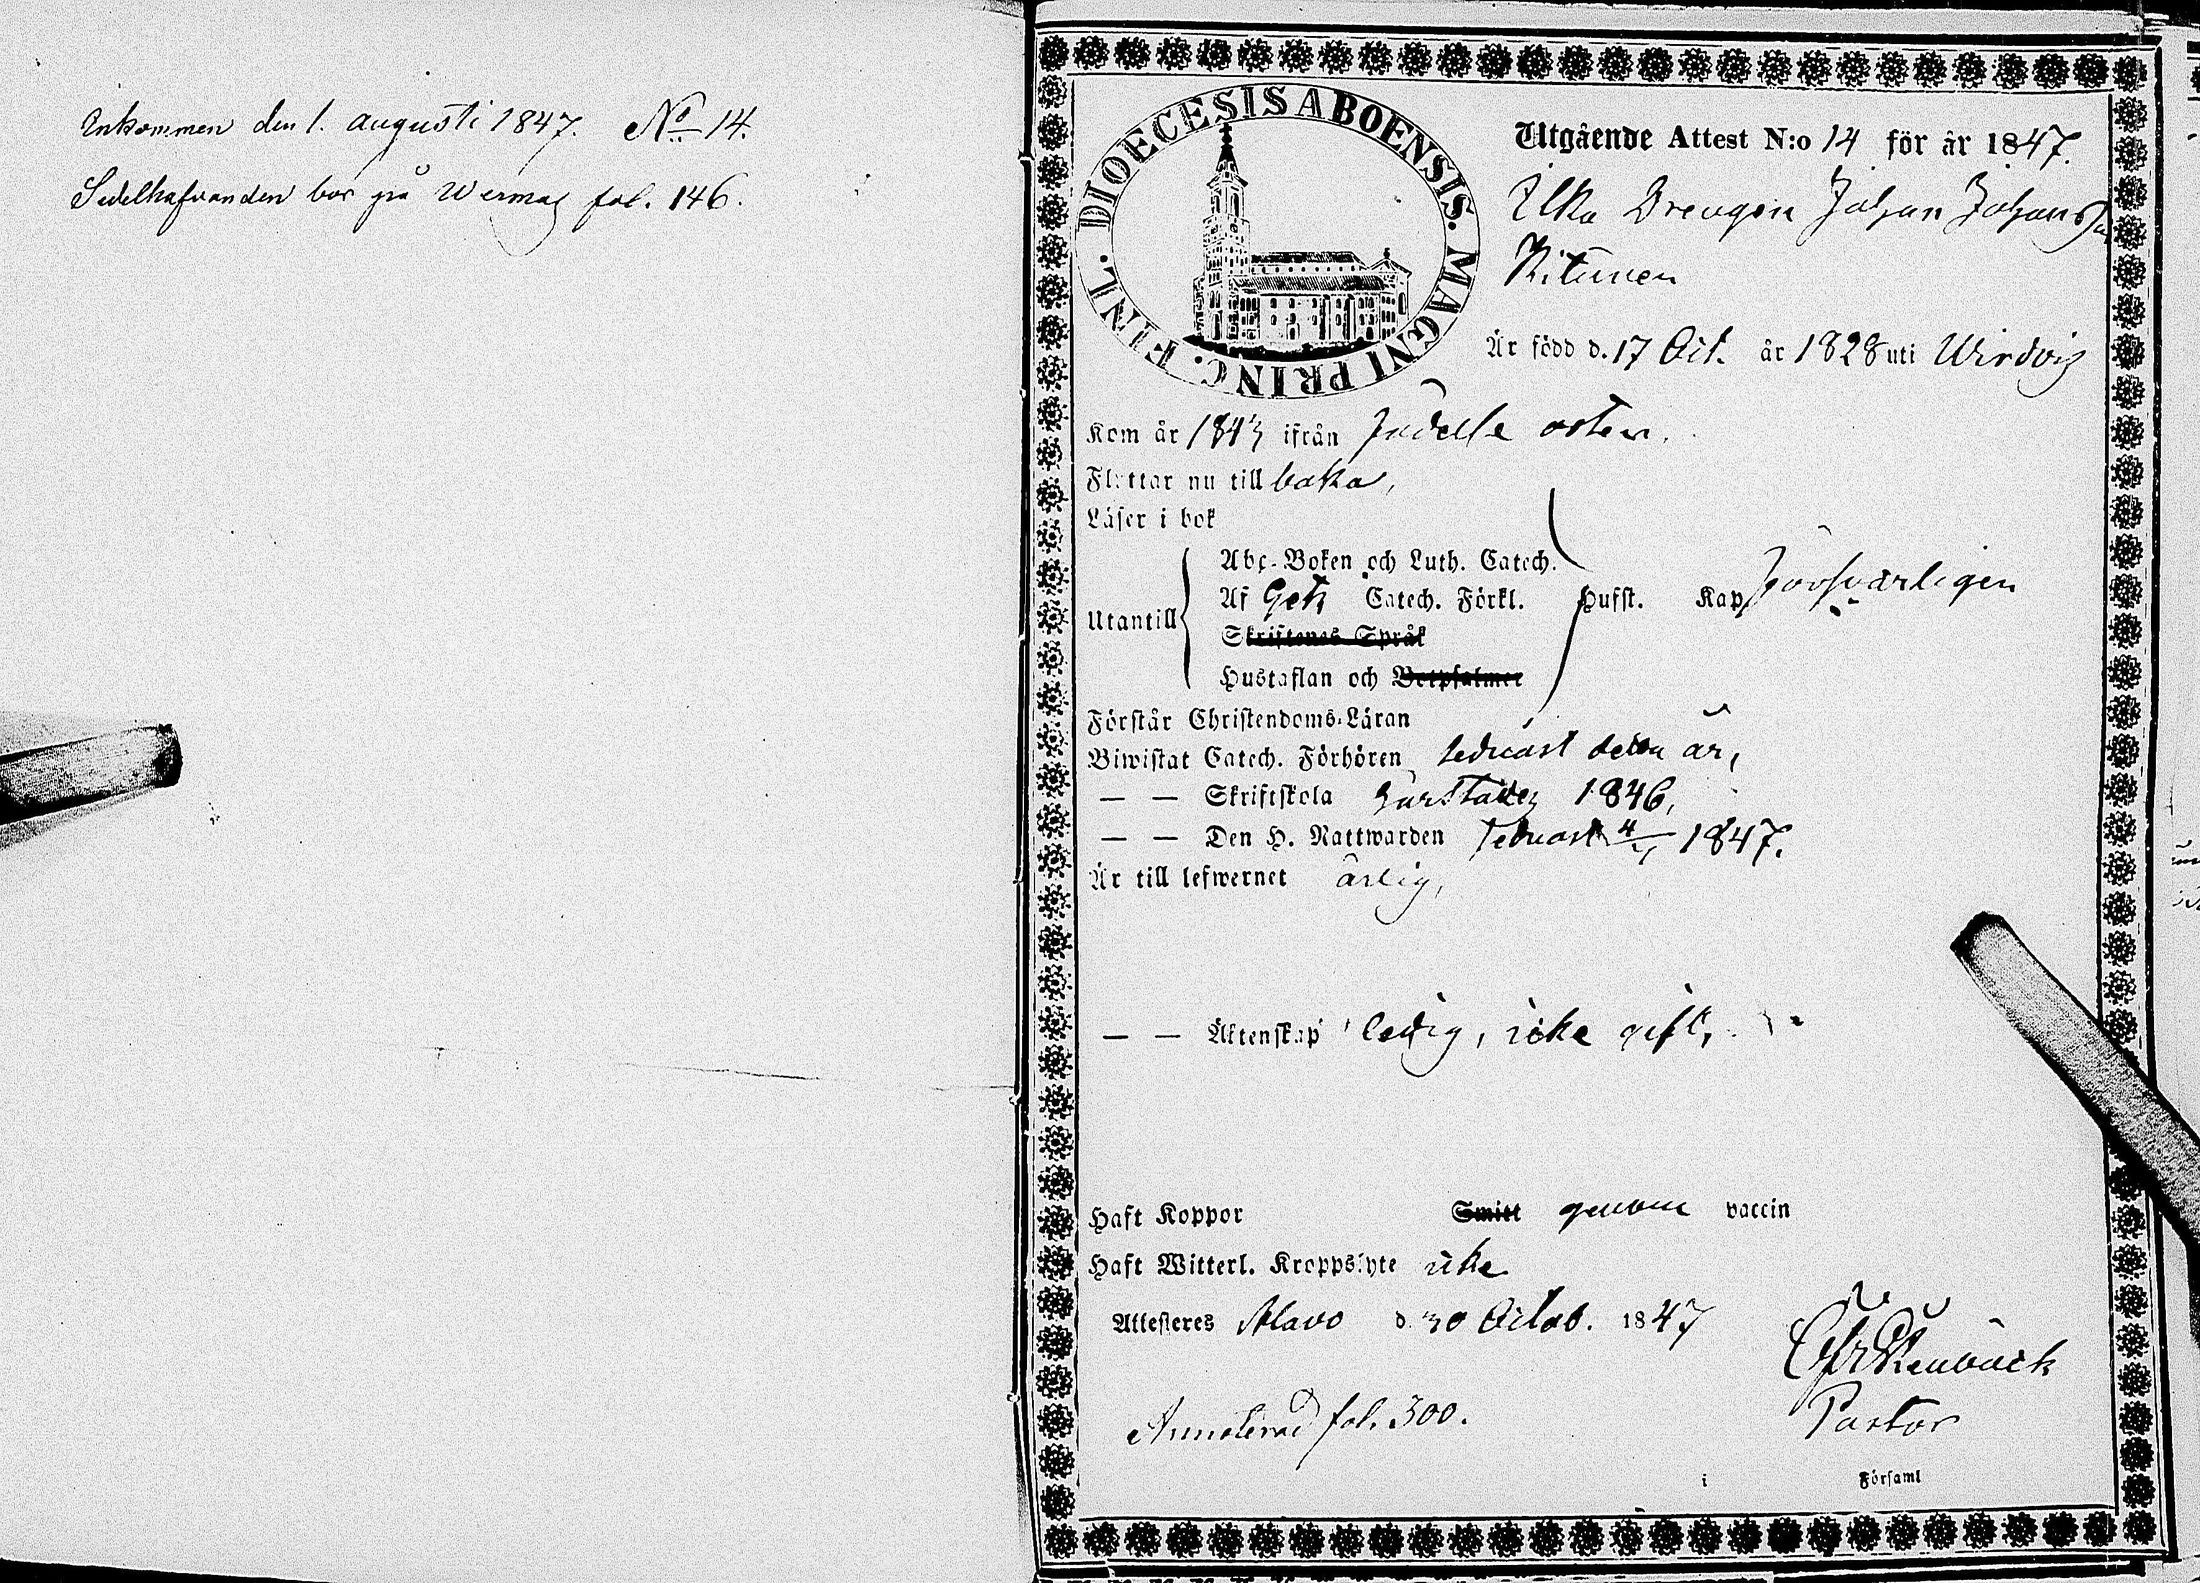 Inkommen den 1. augusti 1847. No 14.
Sedelhafvanden bor på Wermas fol. 146.
DIOECESIS ABOENSIS. MAGNI PRINC. FINL.
Utgående Attest N:o 14 för år 1847.
Drengen Johan Johans
Är född d. 17 Oct. år 1828 uti
Kom år 1843 ifrån
Flyttar nu till baka,
Läser i bok
Abc-Boken och Luth. Catech.
Utantill
Af Catech. Förkl. Husft. Kap försvarligen
Skriftenes Språk
Hustaflan och Botpsalmer
Förstår Christendoms-Läran
Biwistat Catech. Förhören sednast detta år,
— — Skriftskola 1846,
— — Den H. Nattwarden sednast 1847.
Är till lefwernet ärlig,
— — Äktenskap ledig, icke gift,
Haft Koppor Smitt genom vaccin
Haft Witterl. Kroppslyte icke
Attesteres Alavo d. 30 Octob. 1847
Pastor
Annoterad fol. 300.
i Församl